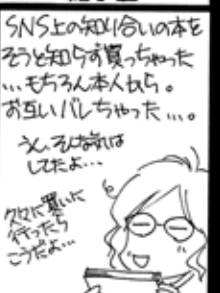 SNS上の知り合いの本を
そうと知らず買っちゃった
…もちろん本人から。
お互いバレちゃった…。
うん、そんな気は
してたよ…
久々に買いに
行ったら
こうだよ…